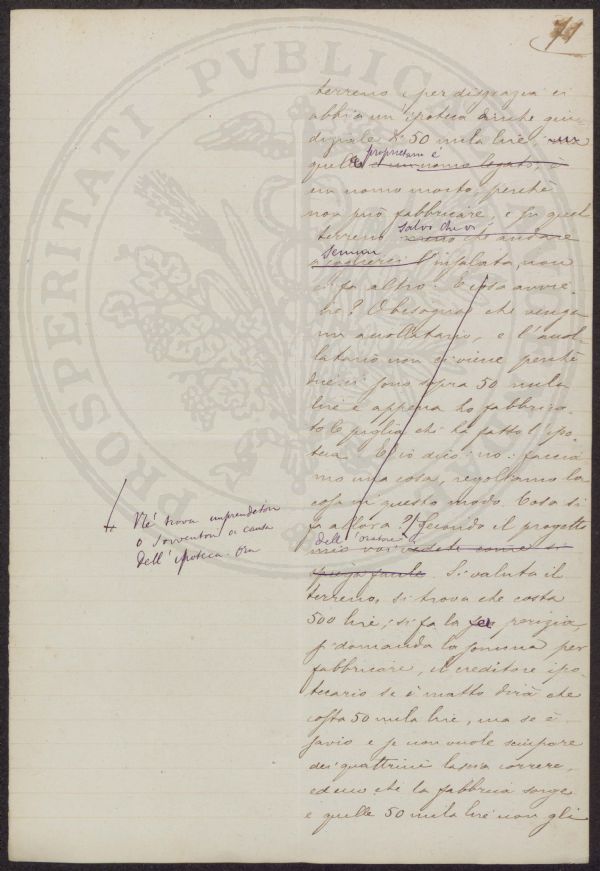 71
PROSPERITATI PVBLICAE
terreno, per disgrazia ci
abbia un'ipoteca anche giu-
diziale di 50 mila lire
quelle è un uomo legato, è
proprietario è
un uomo morto, perchè
non può fabbricare, e in quel
terreno meno che andare
salvo che vi
a cogliervi l'insalata, non
semini
ci fa altro. E cosa avvie-
ne? O bisogna che venga
un avollatario, e l'avol-
latario non ci viene perchè
dice: ci sono sopra 50 mila
lire e appena ho fabbrica-
to le piglia chi ha fatto l'ipo-
teca. E io dico: no: faccia-
mo una cosa, regoliamo la
cosa in questo modo. Cosa si
fa allora? Secondo il progetto
dell'oratore
mio voi vedete come si
spiega facile. Si valuta il
terreno, si trova che costa
500 lire; si fa la perizia,
si domanda la somma per
fabbricare, il creditore ipo-
tecario se è matto dirà che
costa 50 mila lire, ma se è
savio e se non vuole sciupare
dei quattrini lascia correre,
ed ecco che la fabbrica sorge
e quelle 50 mila lire non gli
+ Nè trova imprenditori
o sovventori a causa
dell'ipoteca. Ora